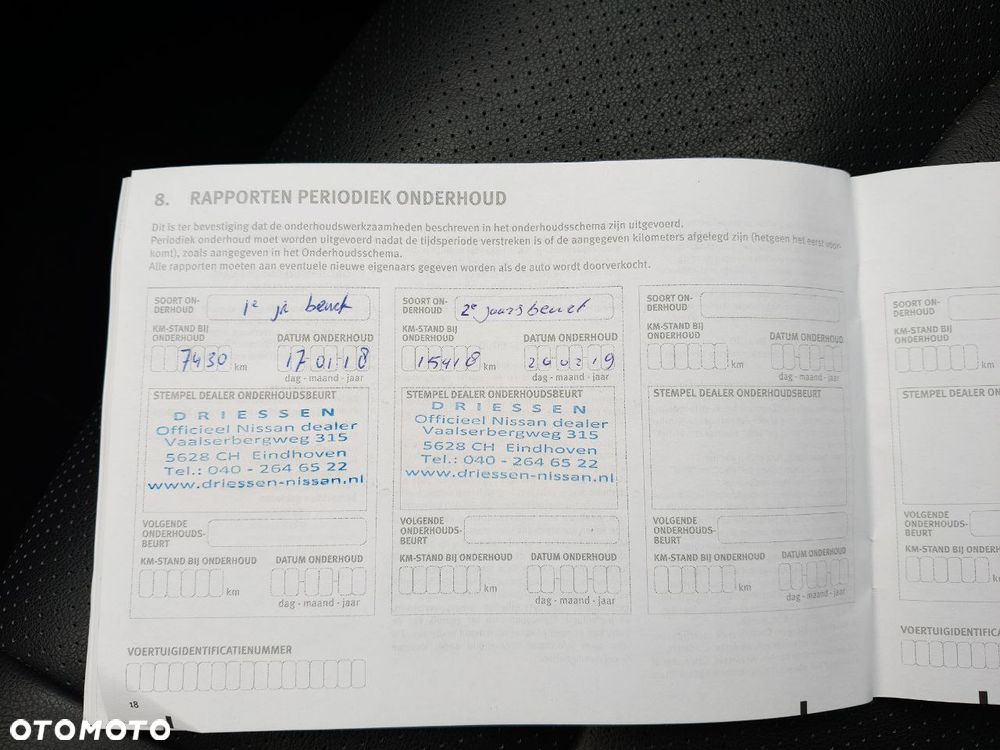 8. RAPPORTEN PERIODIEK ONDERHOUD
Dit is ter bevestiging dat de onderhoudswerkzaamheden beschreven in het onderhoudsschema zijn uitgevoerd.
Periodiek onderhoud moet worden uitgevoerd nadat de tijdsperiode verstreken is of de aangegeven kilometers afgelegd zijn (hetgeen het eerst voor-
komt), zoals aangegeven in het Onderhoudsschema.
Alle rapporten moeten aan eventuele nieuwe eigenaars gegeven worden als de auto wordt doorverkocht.
SOORT ON-
DERHOUD
1e jr beurt
KM-STAND BIJ
ONDERHOUD
DATUM ONDERHOUD
7430 km
17 01 18
dag - maand - jaar
STEMPEL DEALER ONDERHOUDSBEURT
DRIESSEN
Officieel Nissan dealer
Vaalserbergweg 315
5628 CH Eindhoven
Tel.: 040 - 264 65 22
www.driessen-nissan.nl
VOLGENDE
ONDERHOUDS-
BEURT
KM-STAND BIJ ONDERHOUD
DATUM ONDERHOUD
km
dag - maand - jaar
SOORT ON-
DERHOUD
2e jaarsbeurt
KM-STAND BIJ
ONDERHOUD
DATUM ONDERHOUD
15418 km
240219
dag - maand - jaar
STEMPEL DEALER ONDERHOUDSBEURT
DRIESSEN
Officieel Nissan dealer
Vaalserbergweg 315
5628 CH Eindhoven
Tel.: 040 - 264 65 22
www.driessen-nissan.nl
VOLGENDE
ONDERHOUDS-
BEURT
KM-STAND BIJ ONDERHOUD
DATUM ONDERHOUD
km
dag - maand - jaar
SOORT ON-
DERHOUD
KM-STAND BIJ
ONDERHOUD
DATUM ONDERHOUD
km
dag - maand - jaar
STEMPEL DEALER ONDERHOUDSBEURT
VOLGENDE
ONDERHOUDS-
BEURT
KM-STAND BIJ ONDERHOUD
DATUM ONDERHOUD
km
dag - maand - jaar
VOERTUIGIDENTIFICATIENUMMER
18
SOORT ON-
DERHOUD
KM-STAND BIJ
ONDERHOUD
km
STEMPEL DEALER ON
VOLGENDE
ONDERHOUDS-
BEURT
KM-STAND BIJ ONDERH
km
VOERTUIGIDENTIFICA
OTOMOTO